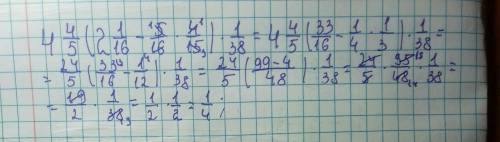 4 4/5 (2 1/16 - 5/16 · 4/15) · 1/38 = 4 4/5 (33/16 - 1/4 · 1/3) · 1/38 =
= 24/5 (33/16 - 1/12) · 1/38 = 24/5 ((99-4)/48) · 1/38 = 24/5 · 95/48 · 1/38 =
= 19/2 · 1/38 = 1/2 · 1/2 = 1/4 ;